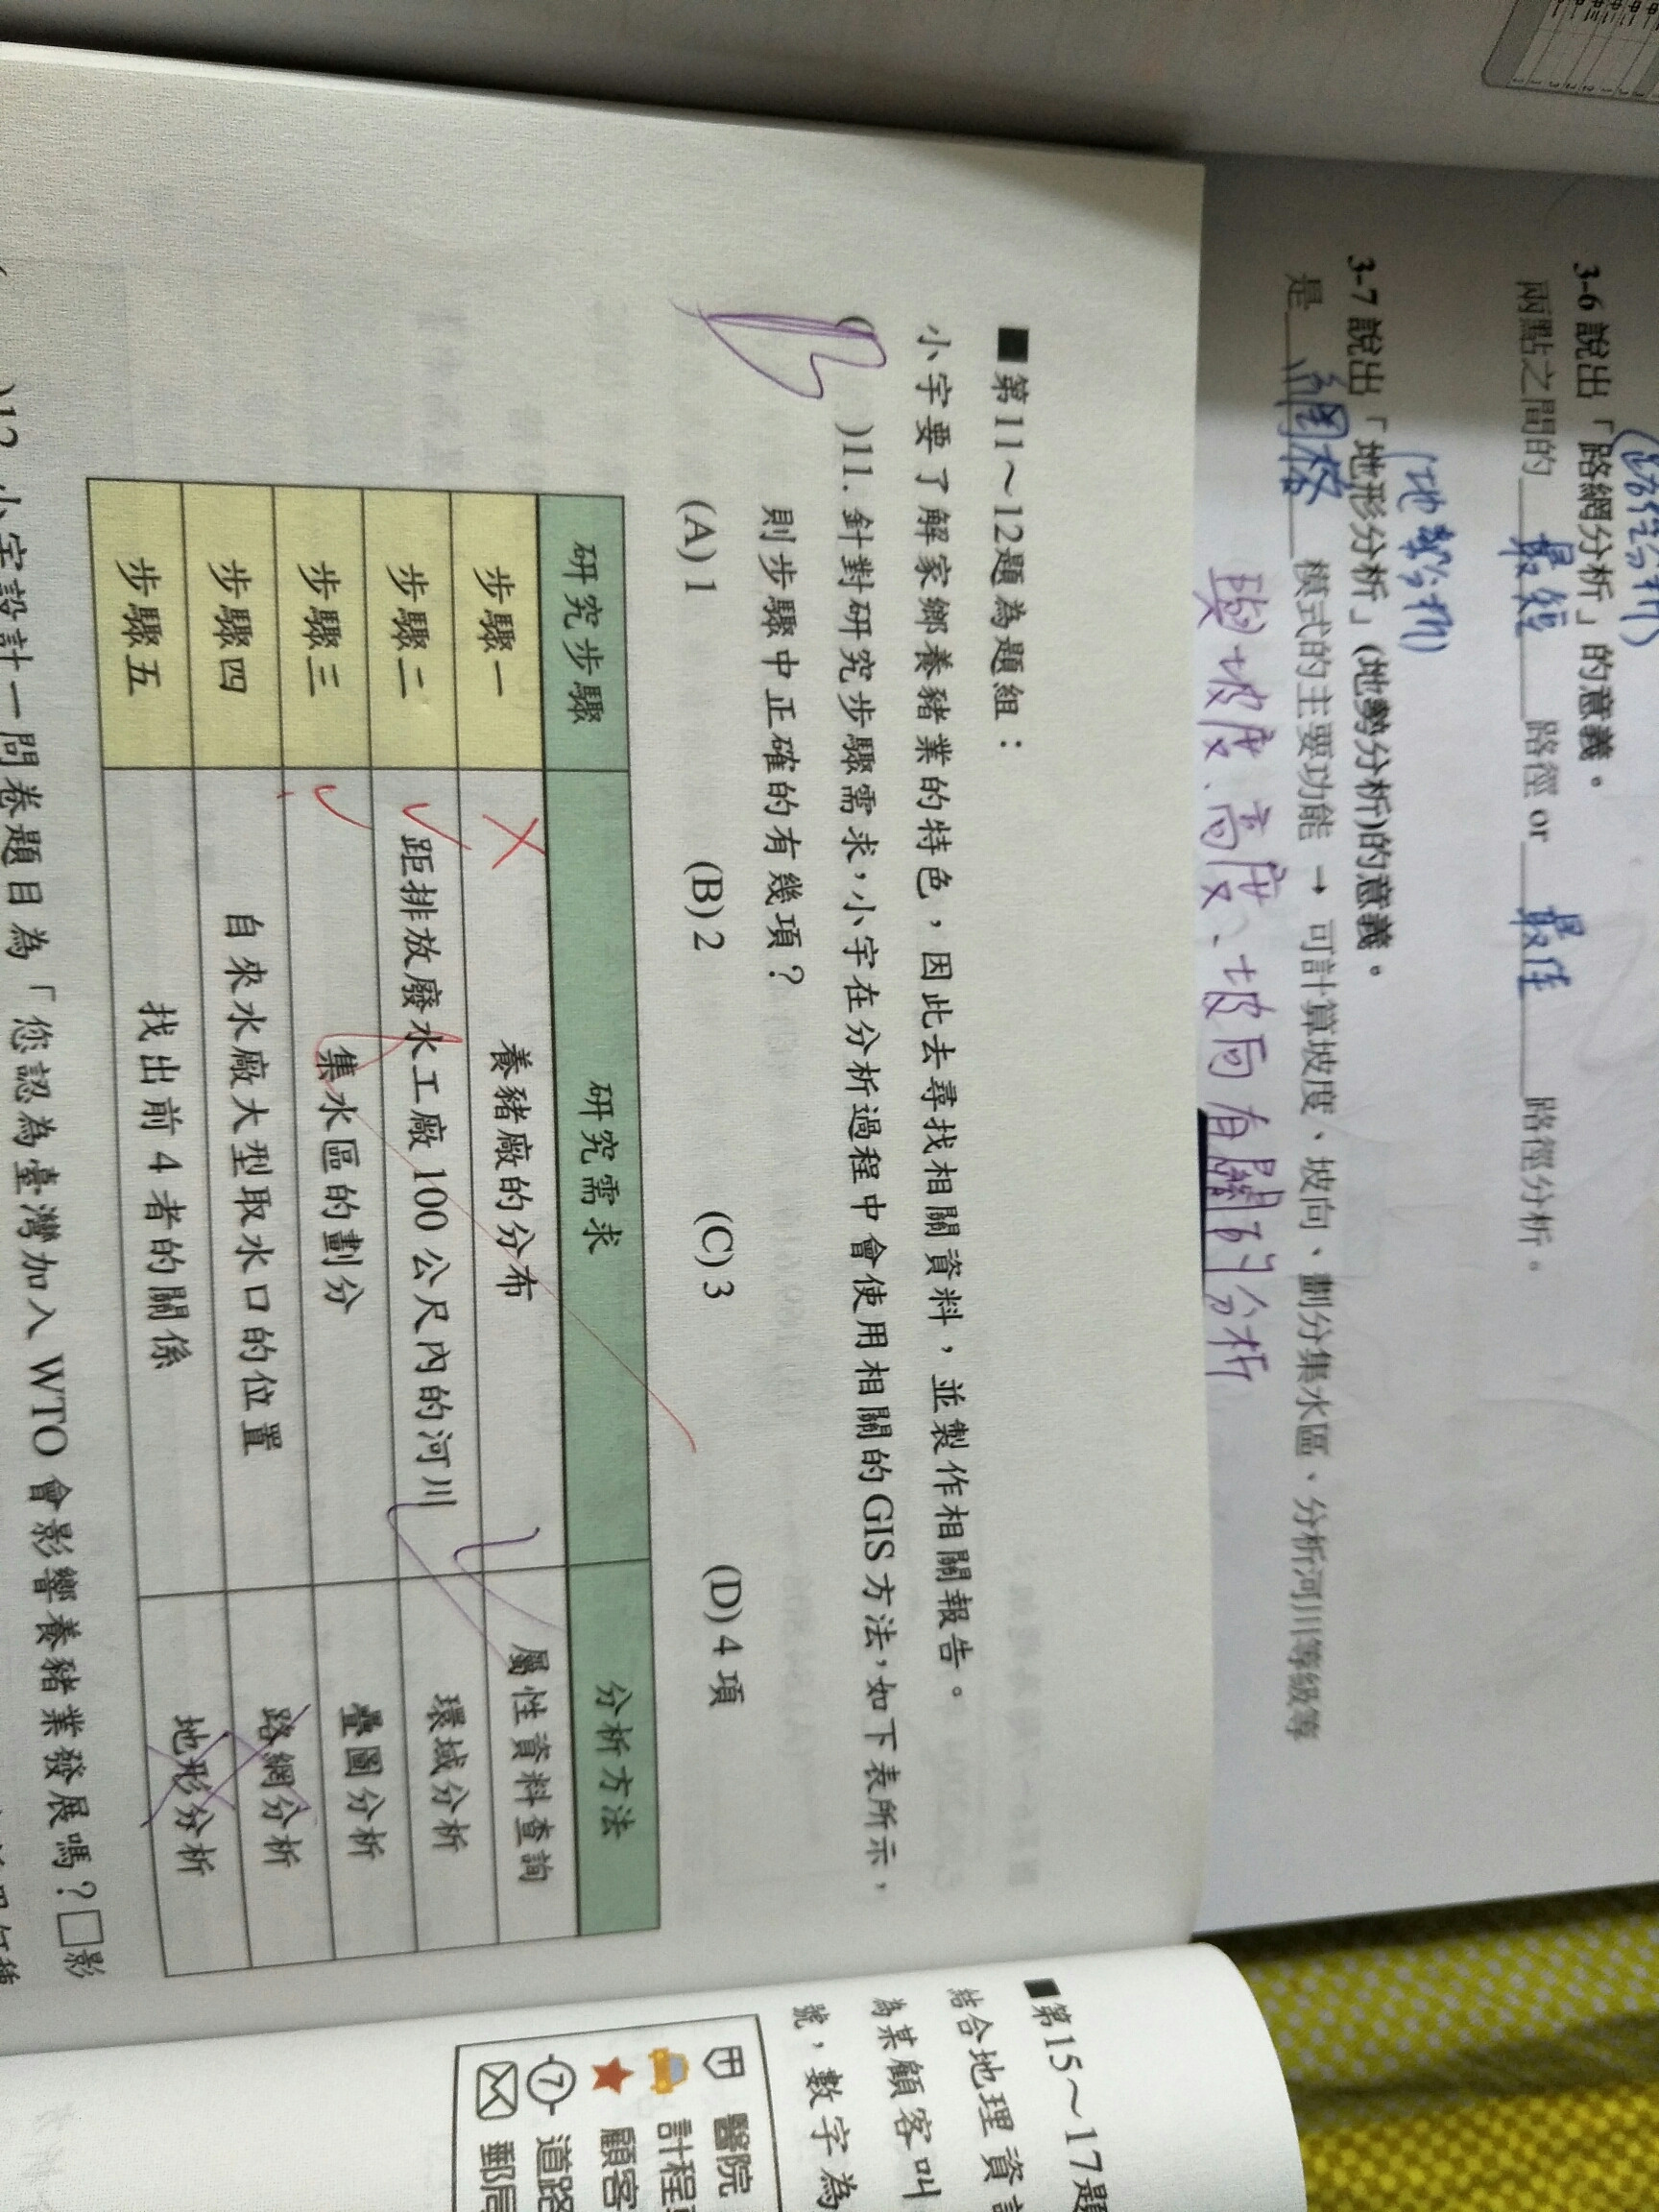 (路徑分析)
3-6 說出「路網分析」的意義。
兩點之間的 最短 路徑 or 最佳 路徑分析。
(地勢分析)
3-7 說出「地形分析」(地勢分析)的意義。
是 網格 模式的主要功能 → 可計算坡度、坡向、劃分集水區、分析河川等級等
與坡度、高度、坡向有關的分析
■第11～12題為題組：
小宇要了解家鄉養豬業的特色，因此去尋找相關資料，並製作相關報告。
( )11. 針對研究步驟需求，小宇在分析過程中會使用相關的GIS方法，如下表所示，
則步驟中正確的有幾項？
(A) 1 (B) 2 (C) 3 (D) 4 項
研究步驟 研究需求 分析方法
步驟一 養豬廠的分布 屬性資料查詢
步驟二 距排放廢水工廠 100 公尺內的河川 環域分析
步驟三 集水區的劃分 疊圖分析
步驟四 自來水廠大型取水口的位置 路網分析
步驟五 找出前 4 者的關係 地形分析
)12. 小宇設計一問卷題目為「您認為臺灣加入 WTO 會影響養豬業發展嗎？□影
■第15～17題
結合地理資訊
為某顧客叫
號，數字為
醫院
計程
顧客
7 道路
郵局